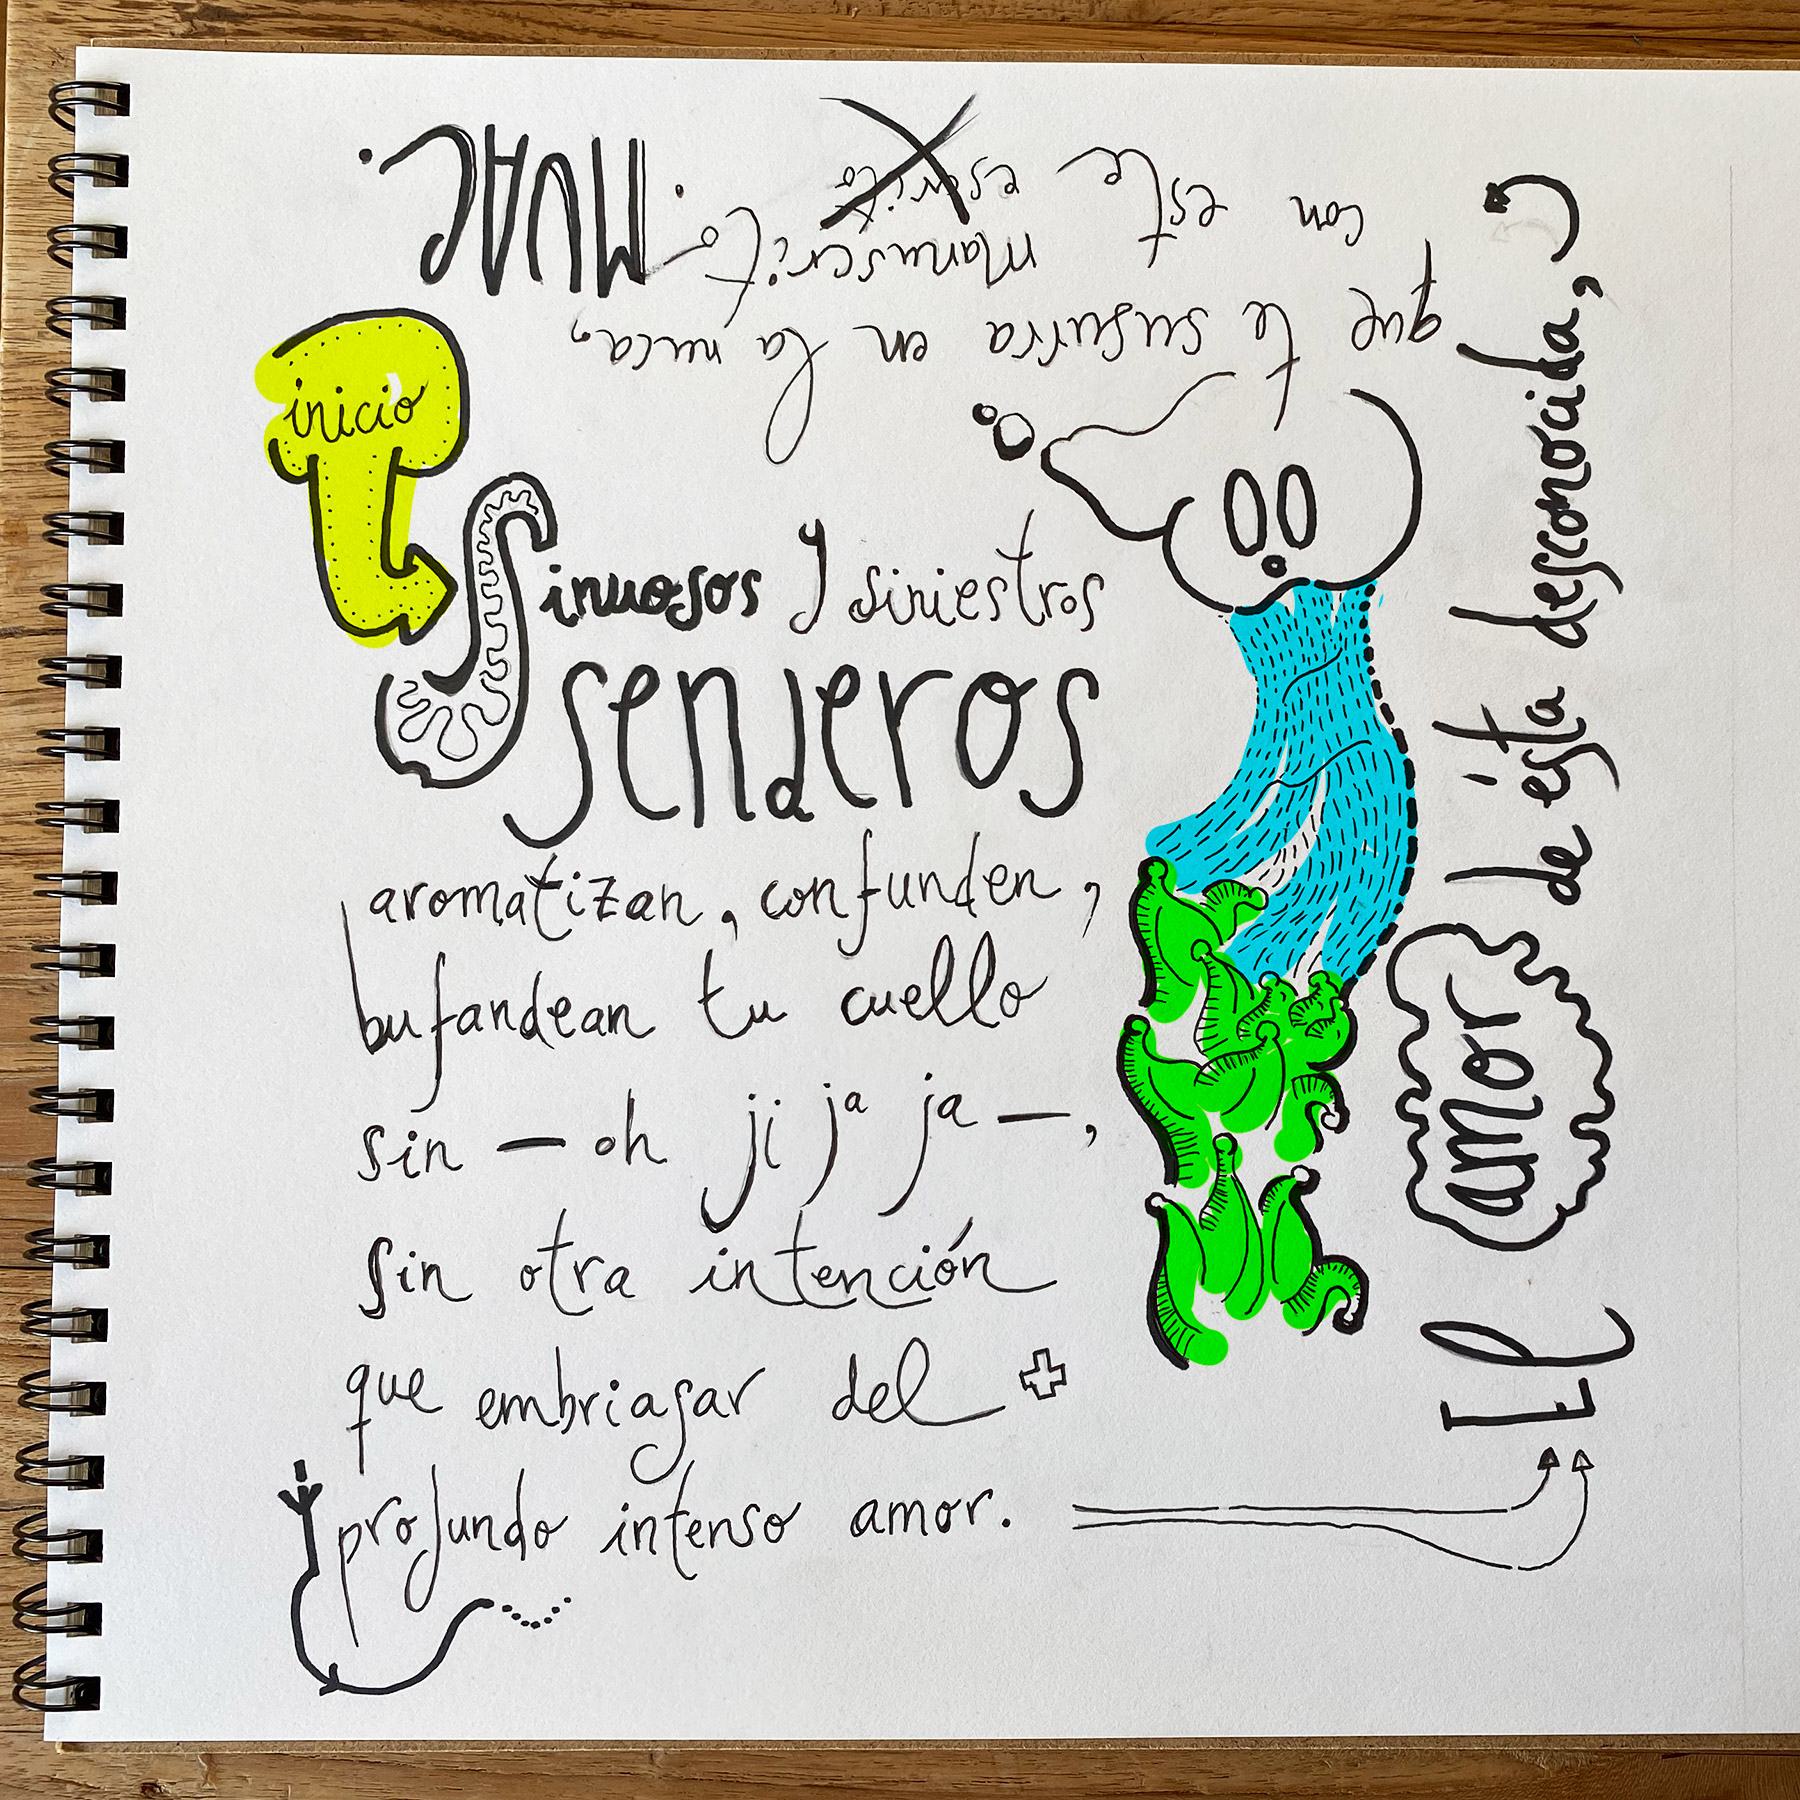 inicio
Sinuosos y siniestros
senderos
aromatizan, confunden,
bufandean tu cuello
sin — oh ji ja ja —,
sin otra intención
que embriagar del +
profundo intenso amor.
El amor de ésta desconocida,
que te susurra en la nuca,
con este escrito
manuscrito.
MUAC.